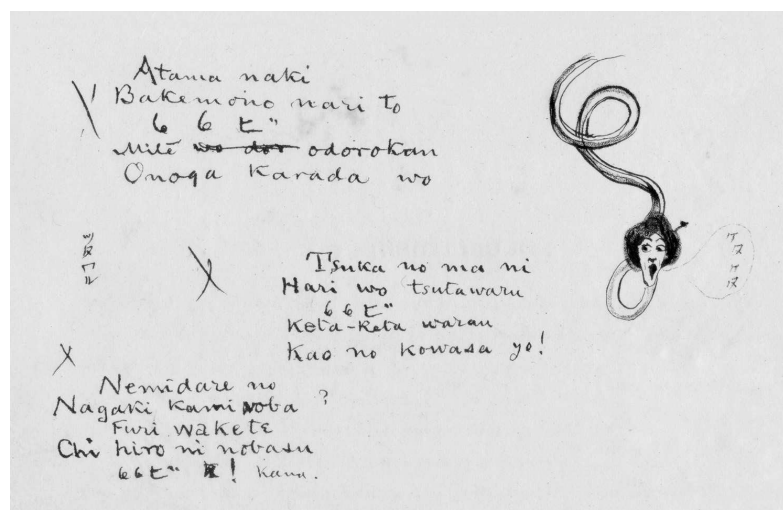 Atama naki
Bakemono nari to
6 6 ヒ"
Mite wo dor odorokan
Onoga Karada wo
ツタワル
Tsuka no ma ni
Hari wo tsutawaru
6 6 ヒ"
Keta-keta warau
Kao no kowasa yo!
ケタケタ
Nemidare no
Nagaki kami woba ?
Furi wakete
Chi hiro ni nobasu
6 6 ヒ" ! Kana.